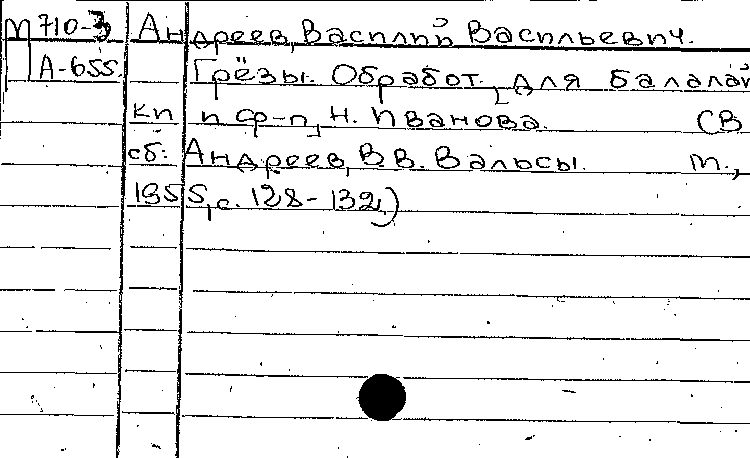 М 710-3 Андреев, Василий Васильевич.
А-655. Грёзы. Обработ. для балалай
ки и ф-п. Н. Иванова. (В
сб: Андреев, В.В. Вальсы. М.,
1955, с. 128-132)